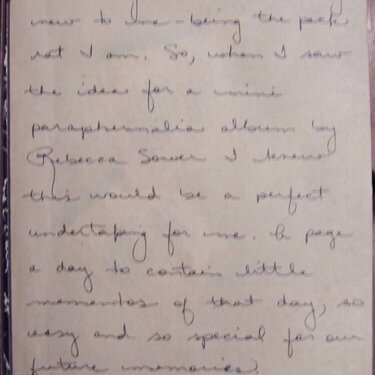 new to me - being the pack
rat I am. So, when I saw
the idea for a mini
paraphernalia album by
Rebecca Sower I knew
this would be a perfect
undertaking for me. A page
a day to contain little
mementos of that day, so
easy and so special for our
future memories.